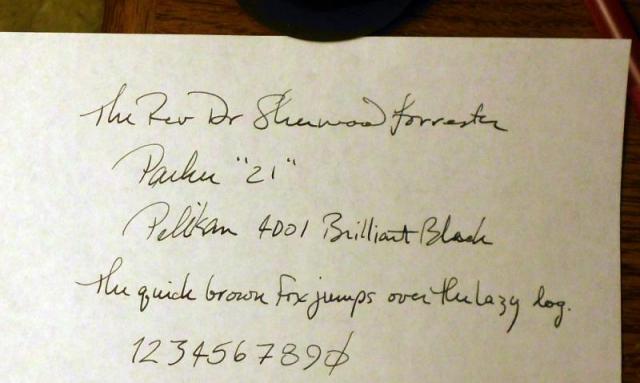 The Rev Dr Sherwood Forrester
Parker "21"
Pelikan 4001 Brilliant Black
The quick brown fox jumps over the lazy dog.
1234567890